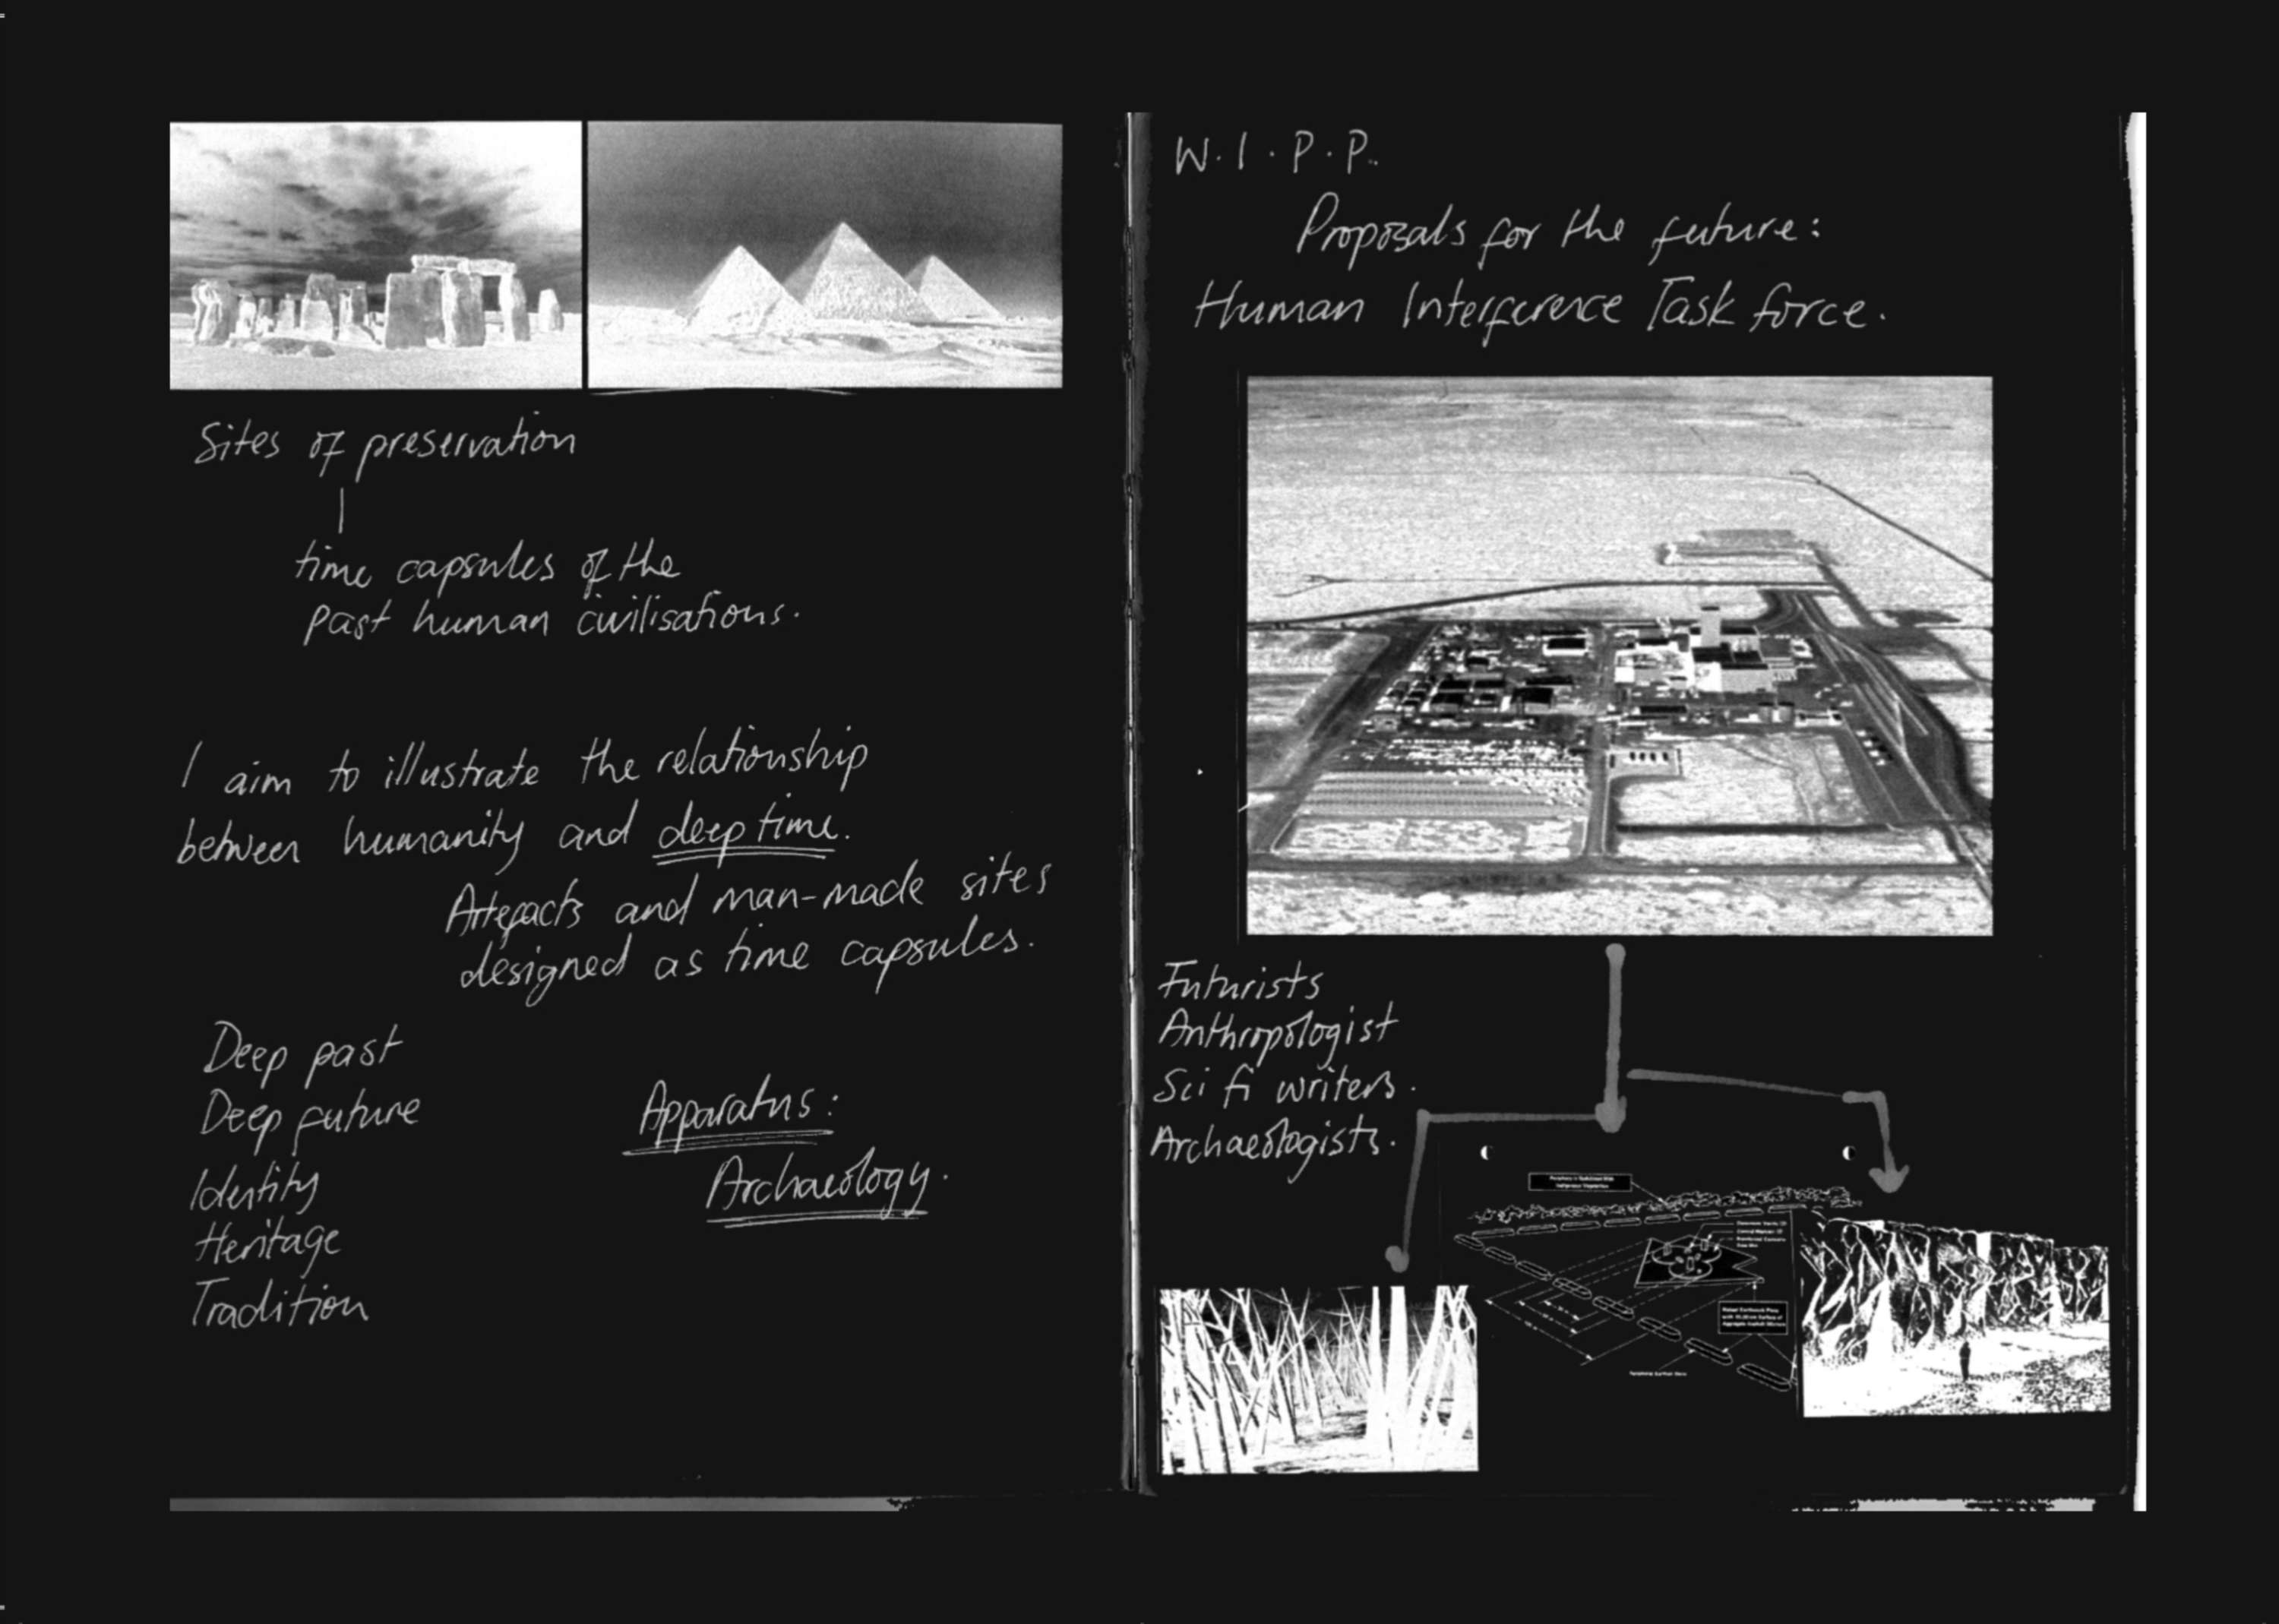 Sites of preservation
time capsules of the
past human civilisations.
I aim to illustrate the relationship
between humanity and deep time.
Artefacts and man-made sites
designed as time capsules.
Deep past
Deep future
Identity
Heritage
Tradition
Apparatus:
Archaeology.
W.I.P.P.
Proposals for the future:
Human Interference Task force.
Futurists
Anthropologist
Sci fi writers.
Archaeologists.